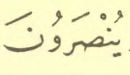 يُنْصَرَوُنَ